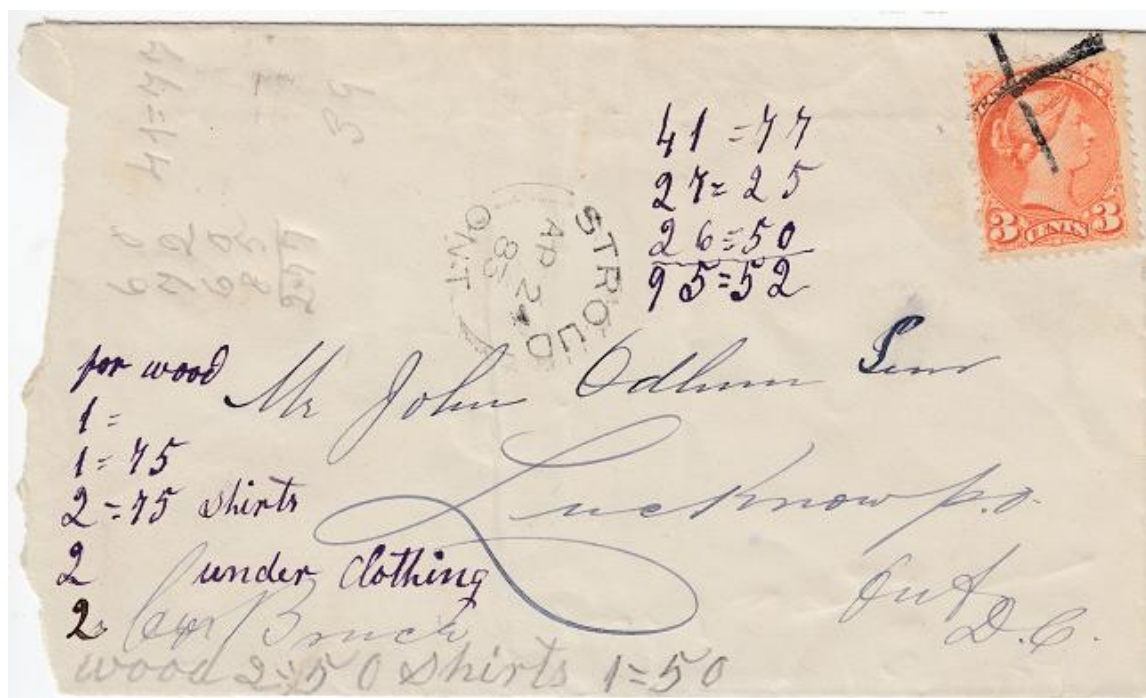 41=77
39
41=77
27=25
26=50
95=52
3 CENTS 3
STROUD
AP 24
85
ONT
for wood
1=
1=75
2=75 shirts
2 under clothing
2
Mr John Odlum Senr
Lucknow p.o.
Ont
D.C.
Co Bruce
wood 2=50 shirts 1=50